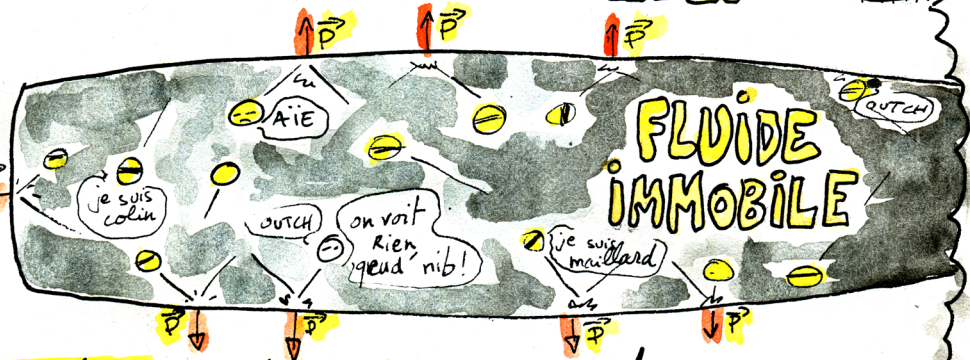 P
P
P
AÏE
OUTCH
FLUIDE
iMMOBiLE
je suis
colin
OUTCH
on voit
Rien
qeud' nib!
je suis
maillard
P
P
P
P